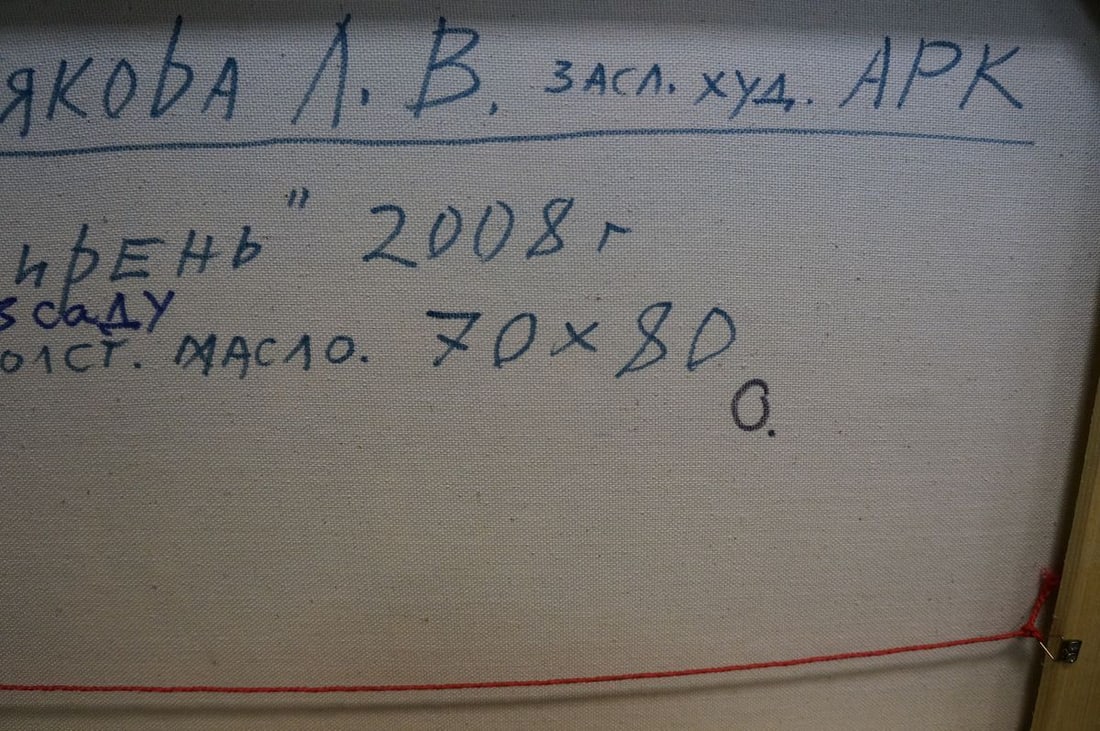 ЯКОВА Л. В. ЗАСЛ. ХУД. АРК
ИРЕНЬ" 2008 г
в саду
ОЛСТ. МАСЛО. 70 x 80
О.